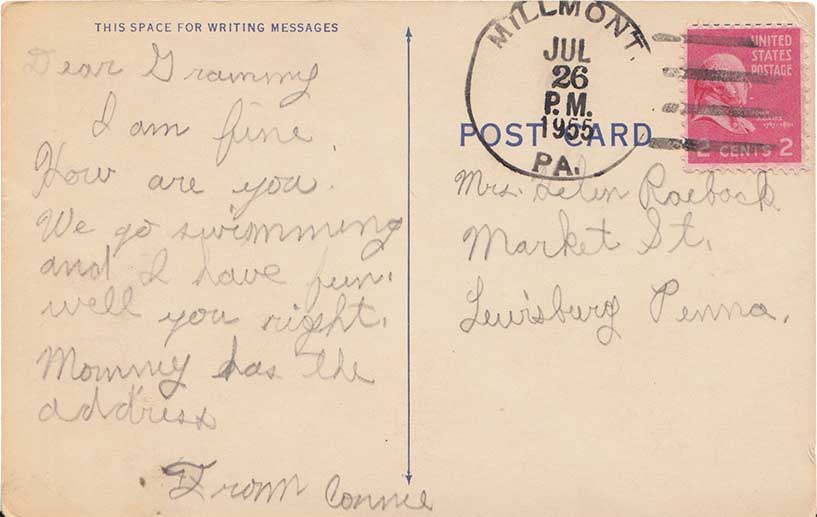 THIS SPACE FOR WRITING MESSAGES
Dear Grammy
I am fine.
How are you.
We go swimming
and I have fun.
well you right.
Mommy has the
address
From Connie
MILLMONT
JUL
26
P.M.
1955
PA.
UNITED
STATES
POSTAGE
2 CENTS 2
POST CARD
Mrs. Helen Roebock
Market St.
Lewisburg Penna.